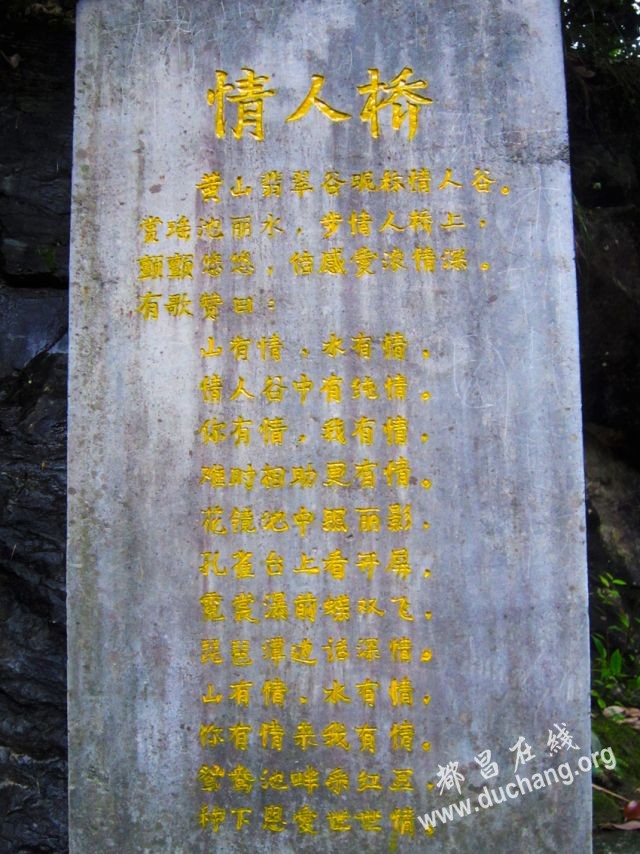 情人桥
黄山翡翠谷昵称情人谷。
赏瑶池丽水，步情人桥上，
颤颤悠悠，倍感爱浓情深。
有歌赞曰：
山有情，水有情，
情人谷中有纯情。
你有情，我有情，
难时相助更有情。
花镜池中照丽影，
孔雀台上看开屏，
霓裳瀑前蝶双飞，
琵琶潭边话深情。
山有情，水有情，
你有情来我有情。
鸳鸯池畔采红豆，
种下恩爱世世情。
都昌在线
www.duchang.org